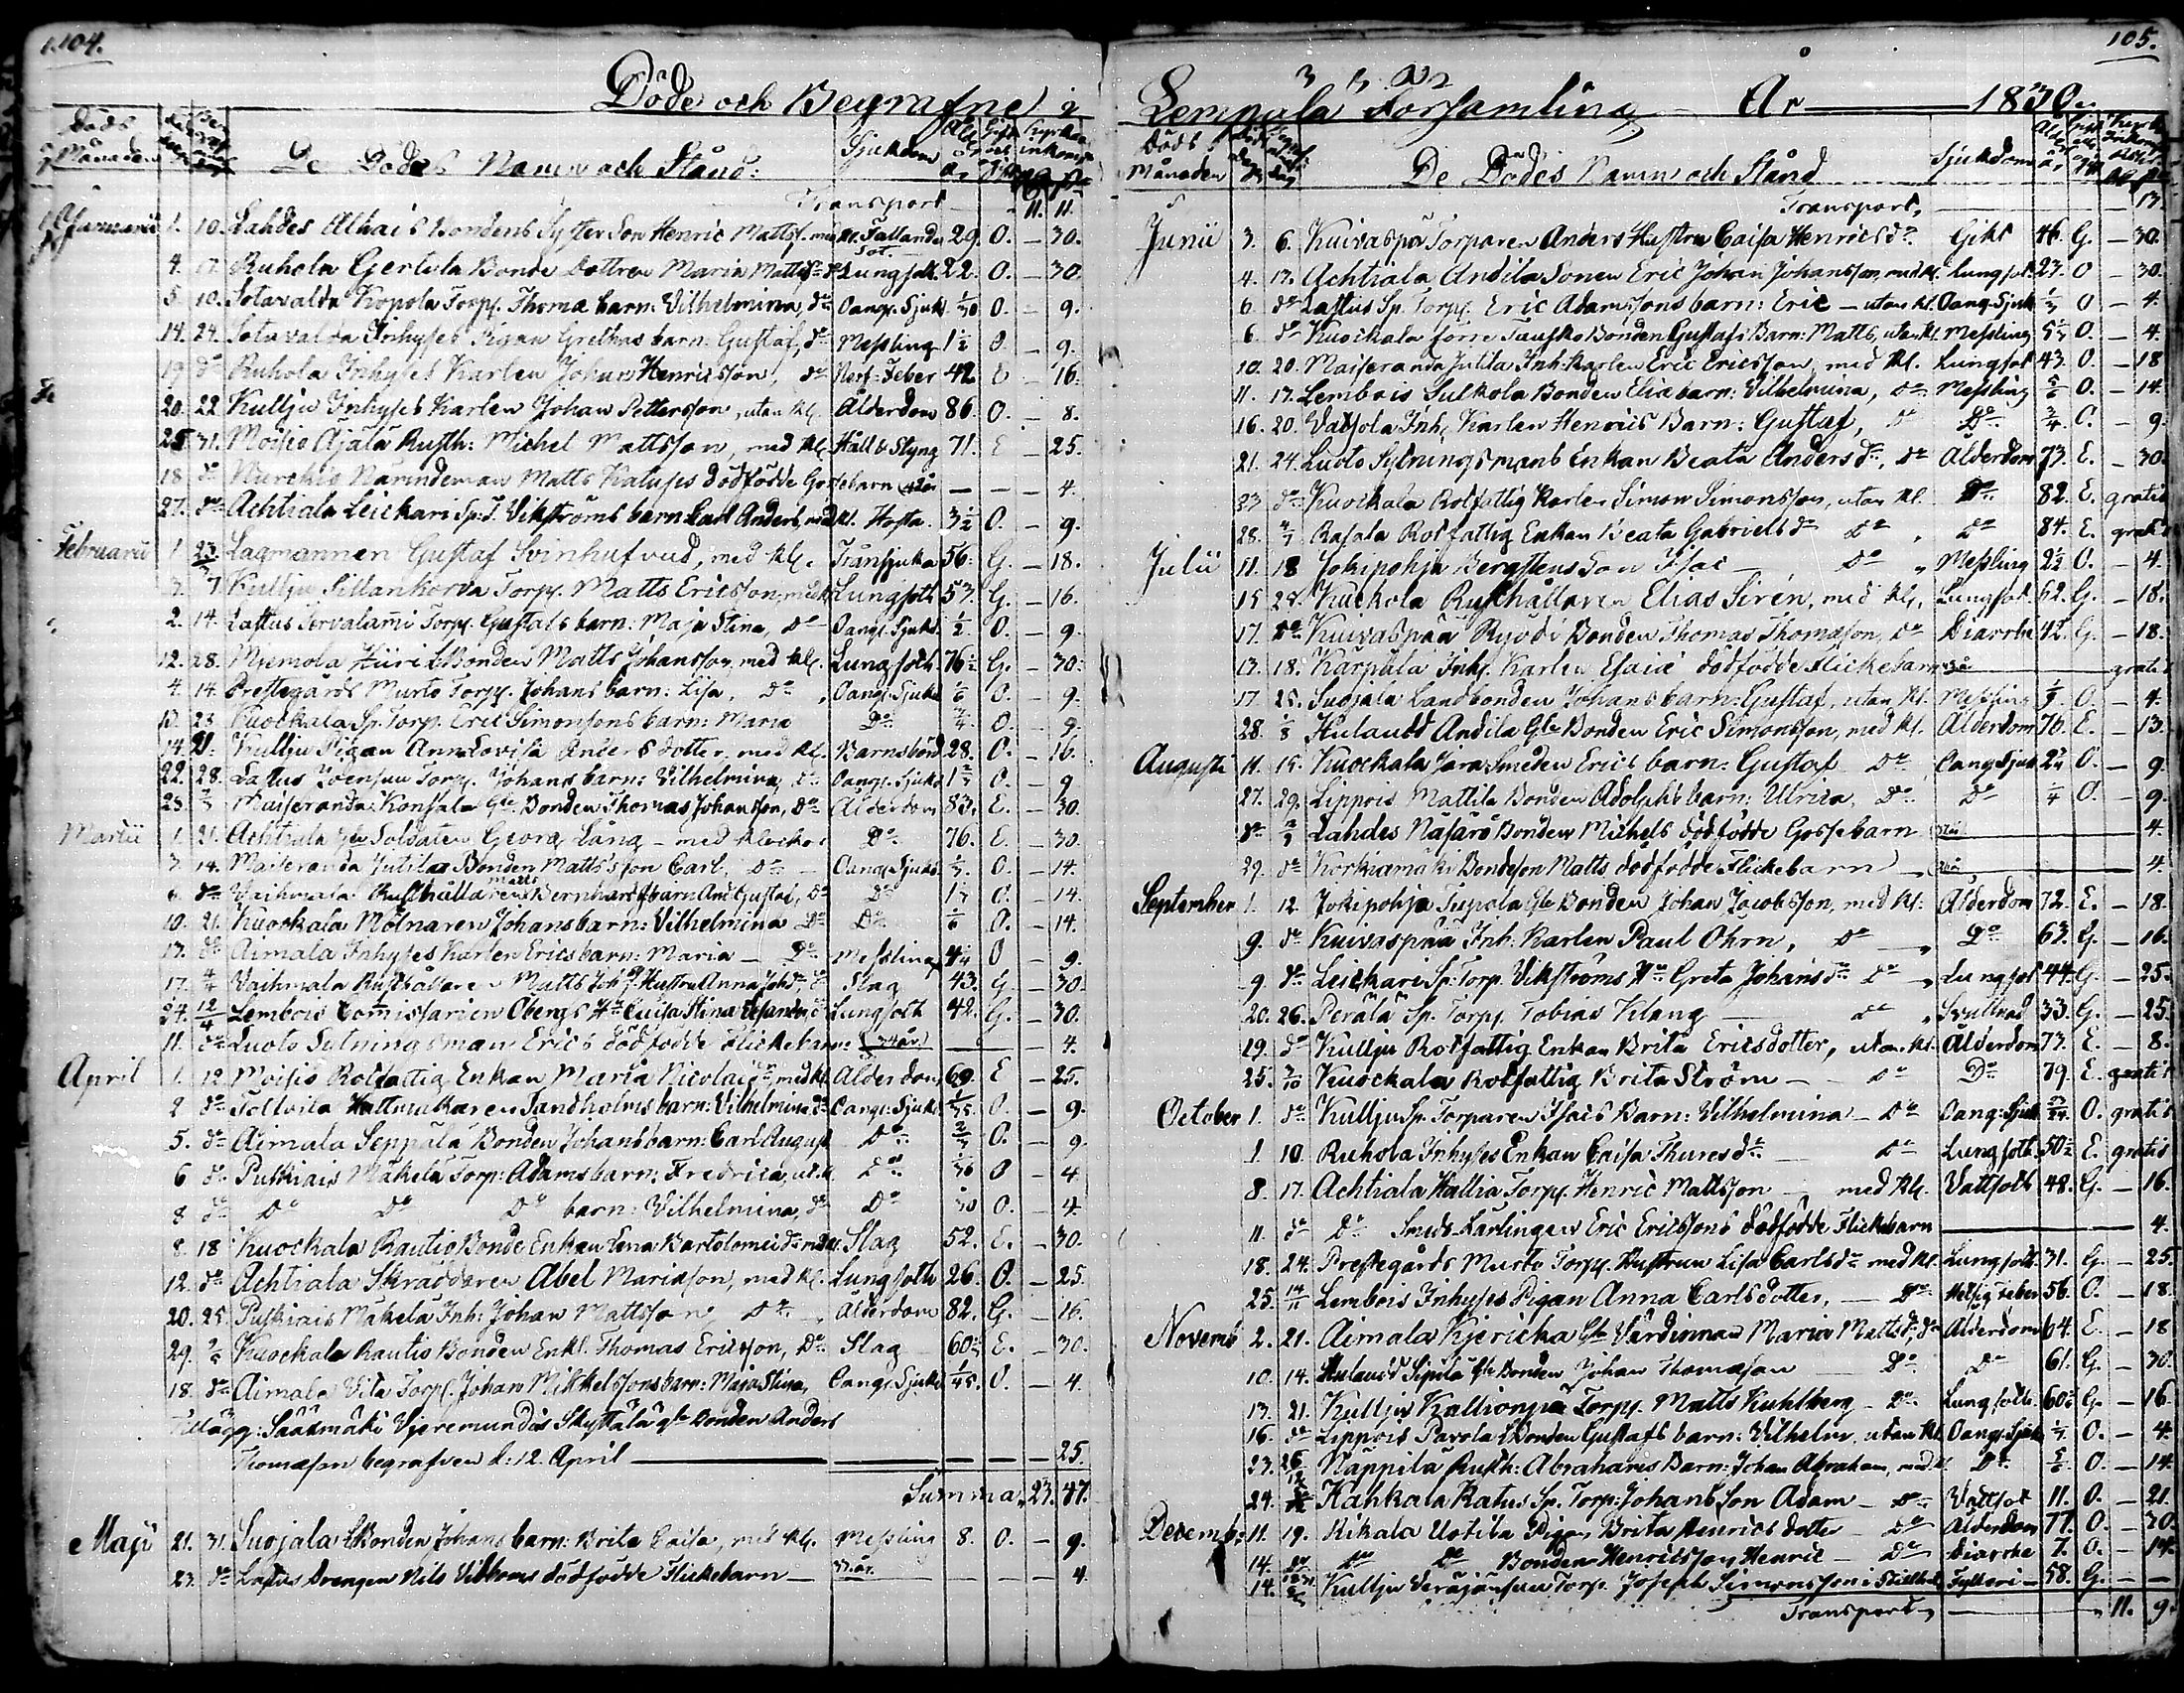 104.
Döde och Begrafne i
Döds Månaden De Dödes Namn och Stånd: Sjukdom
Transport 11. 11.
Januarii 1. 10. Lahdes Alhais Bondens Syster Son Henric Mattss. med kl. Fallande Sot. 29. O. — 30.
4. 17. Ruhola Gertula Bonde Dottren Maria Matts dr do Lungsot. 22. O. — 30.
5. 10. Sotavalda Kopola Torp. Thoma barn: Vilhelmina, do Oang. Sjukd. 1/30 O. — 9.
14. 24. Sotavalda Inhyses Pigan Grethas barn: Gustaf, do Messling 1½ O. — 9.
19 do Ruhola Inhyses Karlen Johan Henricsson, do Nerf-Feber 42. — 16.
20. 22 Kullju Inhyses Karlen Johan Pettersson, utan kl. Ålderdom 86. O. — 8.
25. 31. Moisio Äjälä Rusth: Michel Mattsson, med kl. Håll & Styng 71. E — 25.
18 do Nurckis Nämndeman Matts dödfödde Gossebarn — — — 4.
27. do Achtiala Leickari Sp. T. Vikströms barn Carl Anders, med kl. Hosta. 3½ O. — 9.
Februarii 1 23 Lagmannen Gustaf Svinhufvud, med kl. Fränsjuka 56. G. — 18.
3. 7 Kullju Sillankorva Torp. Matts Ericsson, med kl. Lungsoth 57. G. — 16.
2. 14. Lastus Torp. Gustafs barn: Maja Stina, do Oang. Sjukd. ½. O. — 9.
12. 28. Mjemola Hiiri Bonden Matts Johansson, med kl. Lungsoth 76½ G. — 30.
4. 14. Prestegårds Murto Torp. Johans barn: Lisa, do Oang. Sjukd. 1/6 O. — 9.
13. 28 Kuockala Sp. Torp. Eric Simonssons barn: Maria do ¾. O. — 9.
14. 21. Kullju Pigan Anna Lovisa Anders dotter, med kl. Barnsbörd 28. O. — 16.
22. 28. Lastus Torp. Johans barn: Vilhelmina, do Oang. Sjukd. O. — 9
23. Maiseranda Konsala Gle Bonden Thomas Johansson, do Ålderdom 83. E. — 30.
Martii 1. 21. Achtiala Gle Soldaten Georg Lång — med klockor do 76. E. — 30.
3. 14. Maiseranda Jutilas Bonden Matts's son Carl, do Oang. Sjukd. O. — 14.
6 do Vaihmala Rusthållaren Matts Bernhards barn And. Gustaf, do do O. — 14.
10. 21. Kuockala Mölnaren Johans barn: Vilhelmina do do O. — 14.
13. do Aimala Inhyses Karlen Erics barn: Maria — do Messling O — 9.
17. 4/4 Vaihmala Rusthållaren Matts Joh. Hustru Anna Joh. dr do Slag 43. G. — 30.
24. 12/4 Lembois Comissarien Obergs Hu Caisa Stina do Lungsoth 42. G. — 30.
11. do Luoto Sytningsman Erics dödfödde Flickebarn: — — — 4.
April 1. 12. Moisio Rotfattig Enkan Maria Nicolai dr, med kl. Ålderdom 69. E — 25.
2 do Hattmakaren Sandholms barn: Vilhelmina do Oang. Sjukd. O. — 9.
5. do Aimala Seppälä Bonden Johans barn: Carl August do O. — 9.
6 do Putkiais Mäkelä Torp: Adams barn: Fredrica, ut. kl. do O — 4
8 do do do do barn: Vilhelmina, do do O. — 4.
8. 18 Kuockala Rautio Bonde Enkan Lena Bartolomei dr med kl. Slag 52. E. — 30.
12. do Achtiala Skräddaren Abel Mariasson, med kl. Lungsoth 26. O. — 25.
20. 25. Putkiais Mäkelä Inh: Johan Mattsson do Ålderdom 82. G. — 16.
29. Kuockala Rautio Bonden Enkl. Thomas Ericsson, do Slag 60½ E. — 30.
18. do Aimala Vita Torp. Johan Mikkelssons barn: Maja Stina, Oang. Sjukd. 1/45. O. — 4.
Tillägg: Sääxmäki Vjeremundis Skyttälä gle Bonden Anders
Thomasson begrafven d: 12. April — 25.
Summa 23. 47.
Maji 21. 31. Suojala LBonden Johans barn: Brita Caisa, med kl. Messling 8. O. — 9.
23. do Lastus Drengen Nils Vibboms dödfödde Flickebarn — 33 år. — — — 4

105.
Lempala Församling År 1830.
Döds Månaden De Dödes Namn och Stånd Sjukdom
Transport, 17.
Junii 3. 6. Kuivaspä Torparen Anders Hustru Caisa Henrics dr Gikt 46. G. — 30.
4. 17. Achtiala Andila Sonen Eric Johan Johansson, med kl. Lungsot. 27. O — 30.
6 do Lastus Sp. Torp. Eric Adamssons barn: Eric — utan kl. Oang. Sjukd. O — 4.
6. do Kuockala förre Tausko Bonden Gustafs Barn: Matts, utan kl. Messling O. — 4.
10. 20. Maiseranda Jutila Inh. Karlen Eric Ericsson, med kl. Lungsot 43. O. — 18
11. 17. Lembois Sulkola Bonden Elia barn: Vilhelmina, do Messling O. — 14.
16. 20. Vaihola Inh. Karlen Henrics Barn: Gustaf, do do ¾. O. — 9.
21. 24. Luoto Sytningsmans Enkan Beata Anders dr, do Ålderdom 73. E. — 30.
23 do Kuockala Rotfattig Karlen Simon Simonsson, utan kl. do 82. E. gratis
28. 4/7 Rasala Rotfattig Enkan Beata Gabriels dr do do 84. E. gratis
Julii 11. 18 Jokipohja Bergstens Son Isac — do Messling O. — 4.
15 25. Kuckola Rusthållaren Elias Sirén, med kl. Lungsot. 62. G. — 18.
17. do Kuivaspää Ryödi Bonden Thomas Thomasson, do Diarrhe G. — 18.
13. 18. Karpala Inh. Karlen Esaiæ dödfödde Flickebarn gratis
17 25. Suojala Landbonden Johans barn: Gustaf, utan kl. Messling O. — 4.
28. 1/8 Hulaudd Andila Gle Bonden Eric Simonsson, med kl. Ålderdom 76. E. — 13.
Augusti 11. 15. Kuockala Jara Smeden Erics barn: Gustaf do Oang. Sjukd. O. — 9.
27. 29. Lippois Mattila Bonden Adolphs barn: Ulrica, do do ¼ O. — 9.
do Lahdes Näfärö Bonden Michels dödfödde Gossebarn 4.
29. do Korkiamäki Bondeson Matts dödfödde Flickebarn 4.
September 1. 12. Jokipohja Tiupola Gle Bonden Johan Jacobsson, med kl. Ålderdom 72. E. — 18.
9. do Kuivaspää Inh. Karlen Paul Ohrn, do do 63. G. — 16.
9 do Leickari Sp. Torp. Vikströms Hu Greta Johans dr do Lungsot 44. G. — 25.
20. 26. Perälä Sp. Torp. Tobias Klang do Svullnad 33. G. — 25.
19. do Kullju Rotfattig Enkan Brita Ericsdotter, utan kl. Ålderdom 77. E. — 8.
25. 3/10 Kuockala Rotfattig Brita Ström — do do 79. E. gratis
October 1. do Kullju Sp. Torparen Isacs Barn: Vilhelmina — do Oang: Sjukd. O. gratis
1 10 Ruhola Inhyses Enkan Caisa Thures dr — do Lungsoth. 50½ E. gratis
8. 17. Achtiala Hallia Torp. Henric Mattsson — med kl. Vattsoth 48. G. — 16.
11. do do Smeds Lärlingen Eric Ericssons dödfödde Flickebarn 4.
18. 24. Prestegårds Murto Torp. Hustrun Lisa Carls dr med kl. Lungsoth. 31. G. — 25.
25. 14/11 Lembois Inhyses Pigan Anna Carlsdotter, — do Hetsig feber 56. O. — 18.
Novemb 2. 21. Aimala Kjericka Gle Värdinnan Maria Matts dr, do Ålderdom 64. E. — 18
10. 14. Hulaudd Sipilä Gle Bonden Johan Thomasson do do 61. G. — 30.
13. 21. Kullju Kallionpää Torp. Matts Kuhlberg — do Lungsoth. 60½ G. — 16.
16. do Lippois Pavola LBonden Gustafs barn: Vilhelm, utan kl. Oang. Sjukd. O. — 4.
23. 26/12 Näppilä Rusth: Abrahams Barn: Johan Abraham, med kl. do O. — 14.
24. do Kahkala Ratus Sp. Torp: Johans Son Adam — do Vattsot 11. O. — 21.
Decemb: 11. 19. Kikala Uotila Pigan Brita Henrics dotter — do Ålderdom 77. O. — 30.
14. do do do Bonden Henricsson Henric — do Diarrhe 7. O. — 14.
14. Kullju Torp. Joseph Simonsson i Stillhet Fylleri — 58. G. — —
Transport 11. 9.